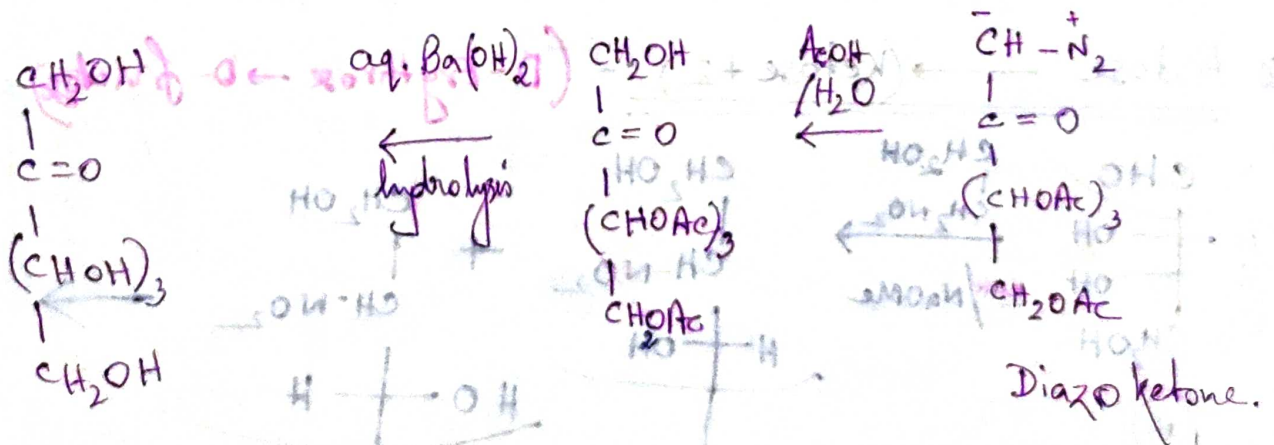 CH₂OH
|
C=O
|
(CHOH)₃
|
CH₂OH
aq. Ba(OH)₂
←
hydrolysis
CH₂OH
|
C=O
|
(CHOAc)₃
|
CH₂OAc
AcOH
/H₂O
←
C̄H–N⁺₂
|
C=O
|
(CHOAc)₃
|
CH₂OAc
Diazo ketone.